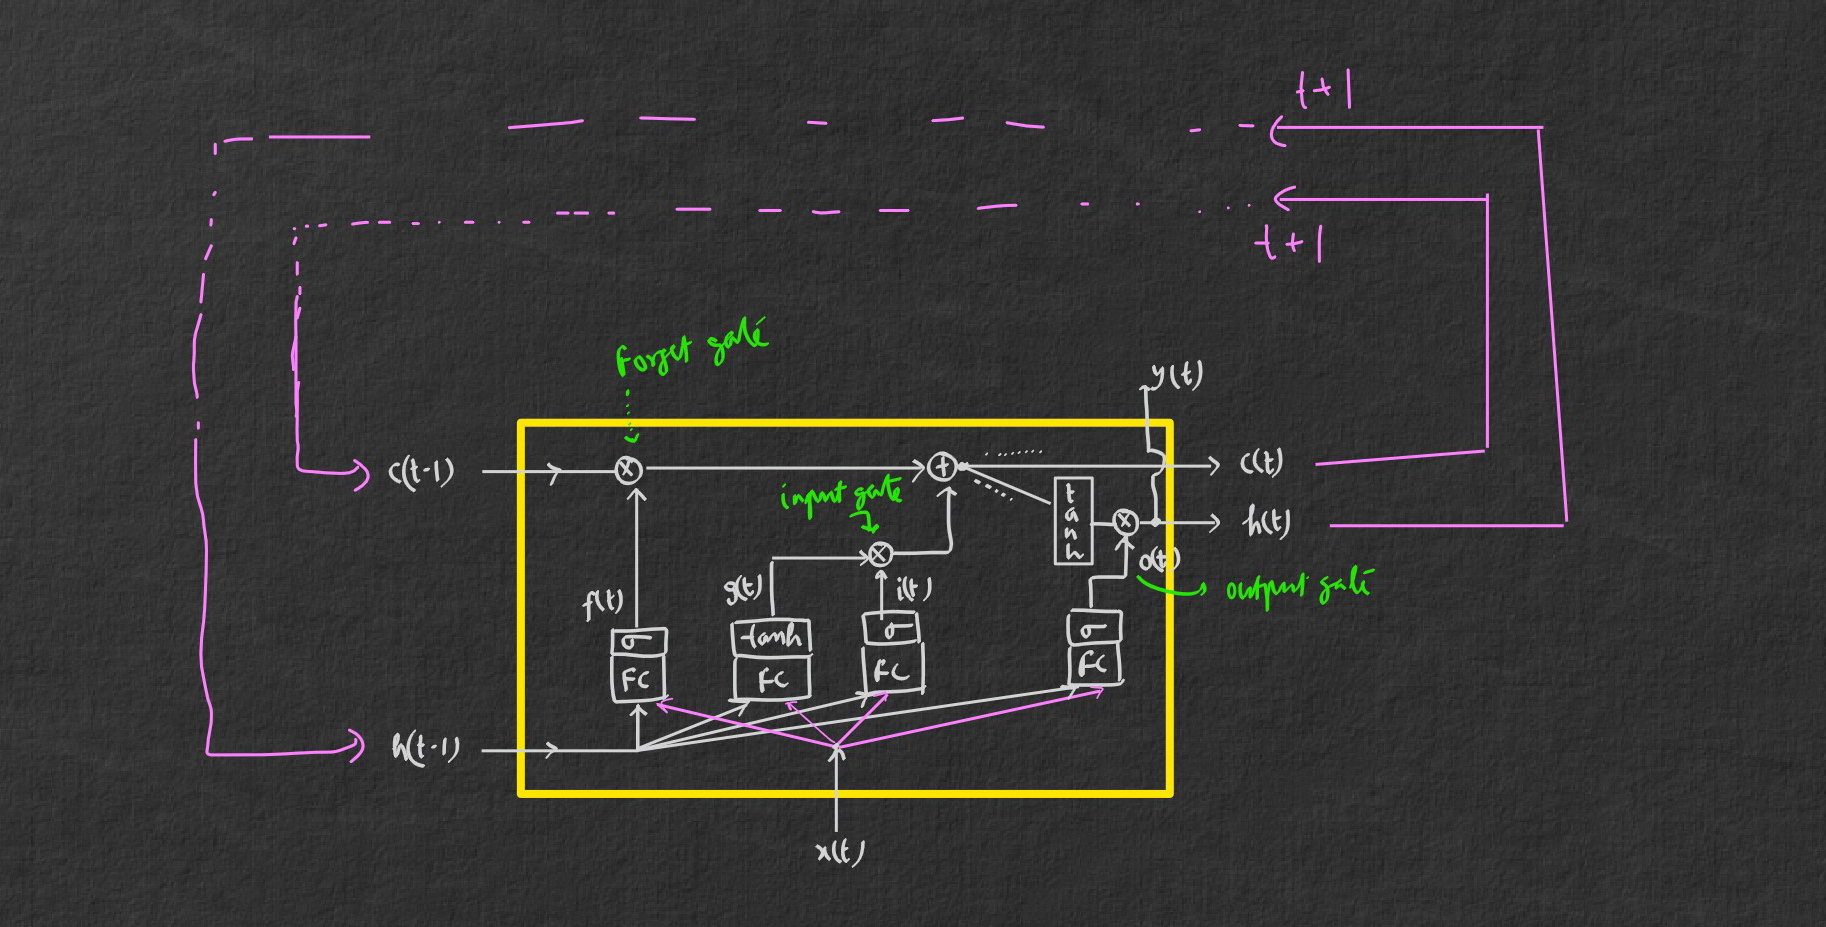 t+1
t+1
Forget gate
y(t)
c(t-1)
x
+
c(t)
input gate
tanh
x
h(t)
x
o(t)
f(t)
g(t)
i(t)
output gate
σ
tanh
σ
σ
FC
FC
FC
FC
h(t-1)
x(t)